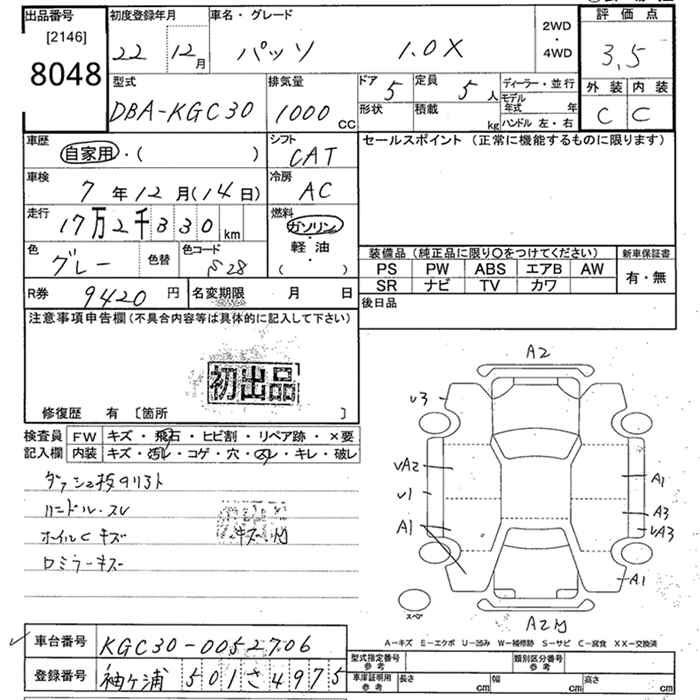 出品番号 初度登録年月 車名・グレード 2WD・4WD 評価点
[2146] 8048 22 12月 パッソ 1.0X 3,5
型式 排気量 ドア 5 定員 5人 ディーラー・並行 外装 内装
DBA-KGC30 1000 CC 形状 積載 kg モデル年式 年 C C
ハンドル 左・右
車歴 自家用・( ) シフト CAT セールスポイント (正常に機能するものに限ります)
車検 7年12月(14日) 冷房 AC
走行 17万2千330km 燃料 ガソリン・軽油・( )
色 グレー 色替 色コード S28 装備品(純正品に限り○をつけてください) 新車保証書
PS PW ABS エアB AW 有・無
SR ナビ TV カワ
R券 9420円 名変期限 月 日 後日品
注意事項申告欄(不具合内容等は具体的に記入して下さい)
初出品
修復歴 有 [箇所 ]
検査員 FW キズ・飛石・ヒビ割・リペア跡・×要
記入欄 内装 キズ・汚レ・コゲ・穴・スレ・キレ・破レ
ハンドル.スレ
ホイルC キズ
ロミラーキズ
A2
U3
UA2
U1
A1
A1
A3
UA3
A1
スペア
A2
A-キズ E-エクボ U-凹み W-補修跡 S-サビ C-腐食 XX-交換済
車台番号 KGC30-0052706 型式指定番号 参考 類別区分番号 参考
登録番号 袖ケ浦 501 さ 4975 車庫証明用 参考 長さ cm 幅 cm 高さ cm